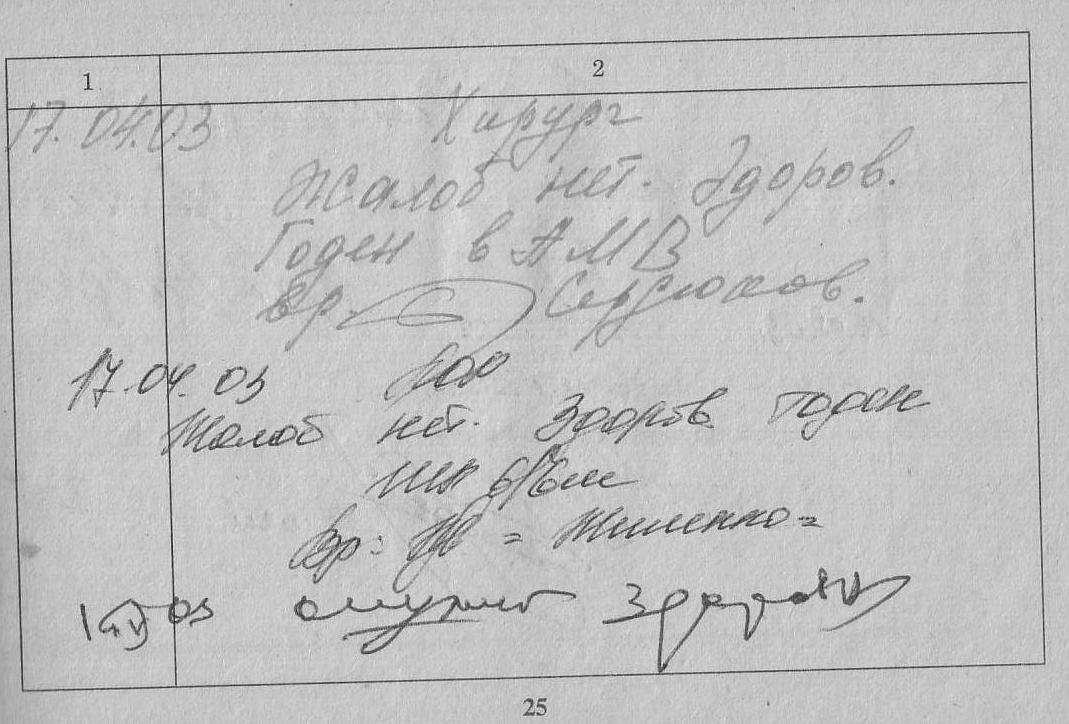 1 2
17.04.03 Хирург
Жалоб нет. Здоров.
Годен в АМВ
Вр. Сердюков.
17.04.03 Лор
Жалоб нет. Здоров годен
шп 6/6м
Вр: = Жиленко =
03 Здоров
25